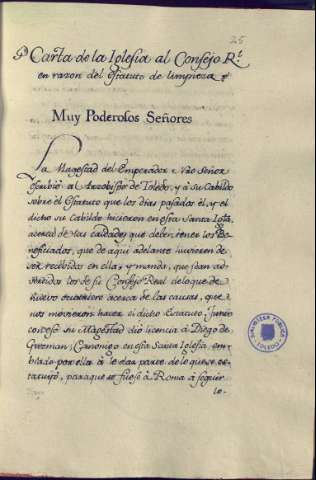 25
Carta de la Iglesia al Consejo R.l
en razon del Estatuto de limpieza
Muy Poderosos Señores
La Magestad del Emperador Nro Señor
escribió al Arzobispo de Toledo, y a su Cabildo
sobre el Estatuto que los dias pasados él, y el
dicho su Cabildo hicieron en esta Santa Igla
acerca de las calidades que deben tener los Be-
neficiados, que de aqui adelante huvieren de
ser recibidos en ella, y manda, que sean ad-
vertidos los de su Consejo Real de lo que de
nuevo acerca de las causas, que
nos movieron hacer el dicho Estatuto, y junto
con eso su Magestad dió licencia a Diego de
Guzman, Canonigo en esta Santa Iglesia, em-
biado por ella à le dar parte de lo que se es-
tatuyó, para que se fuese à Roma à seguir
lo-
BIBLIOTECA PUBLICA
TOLEDO